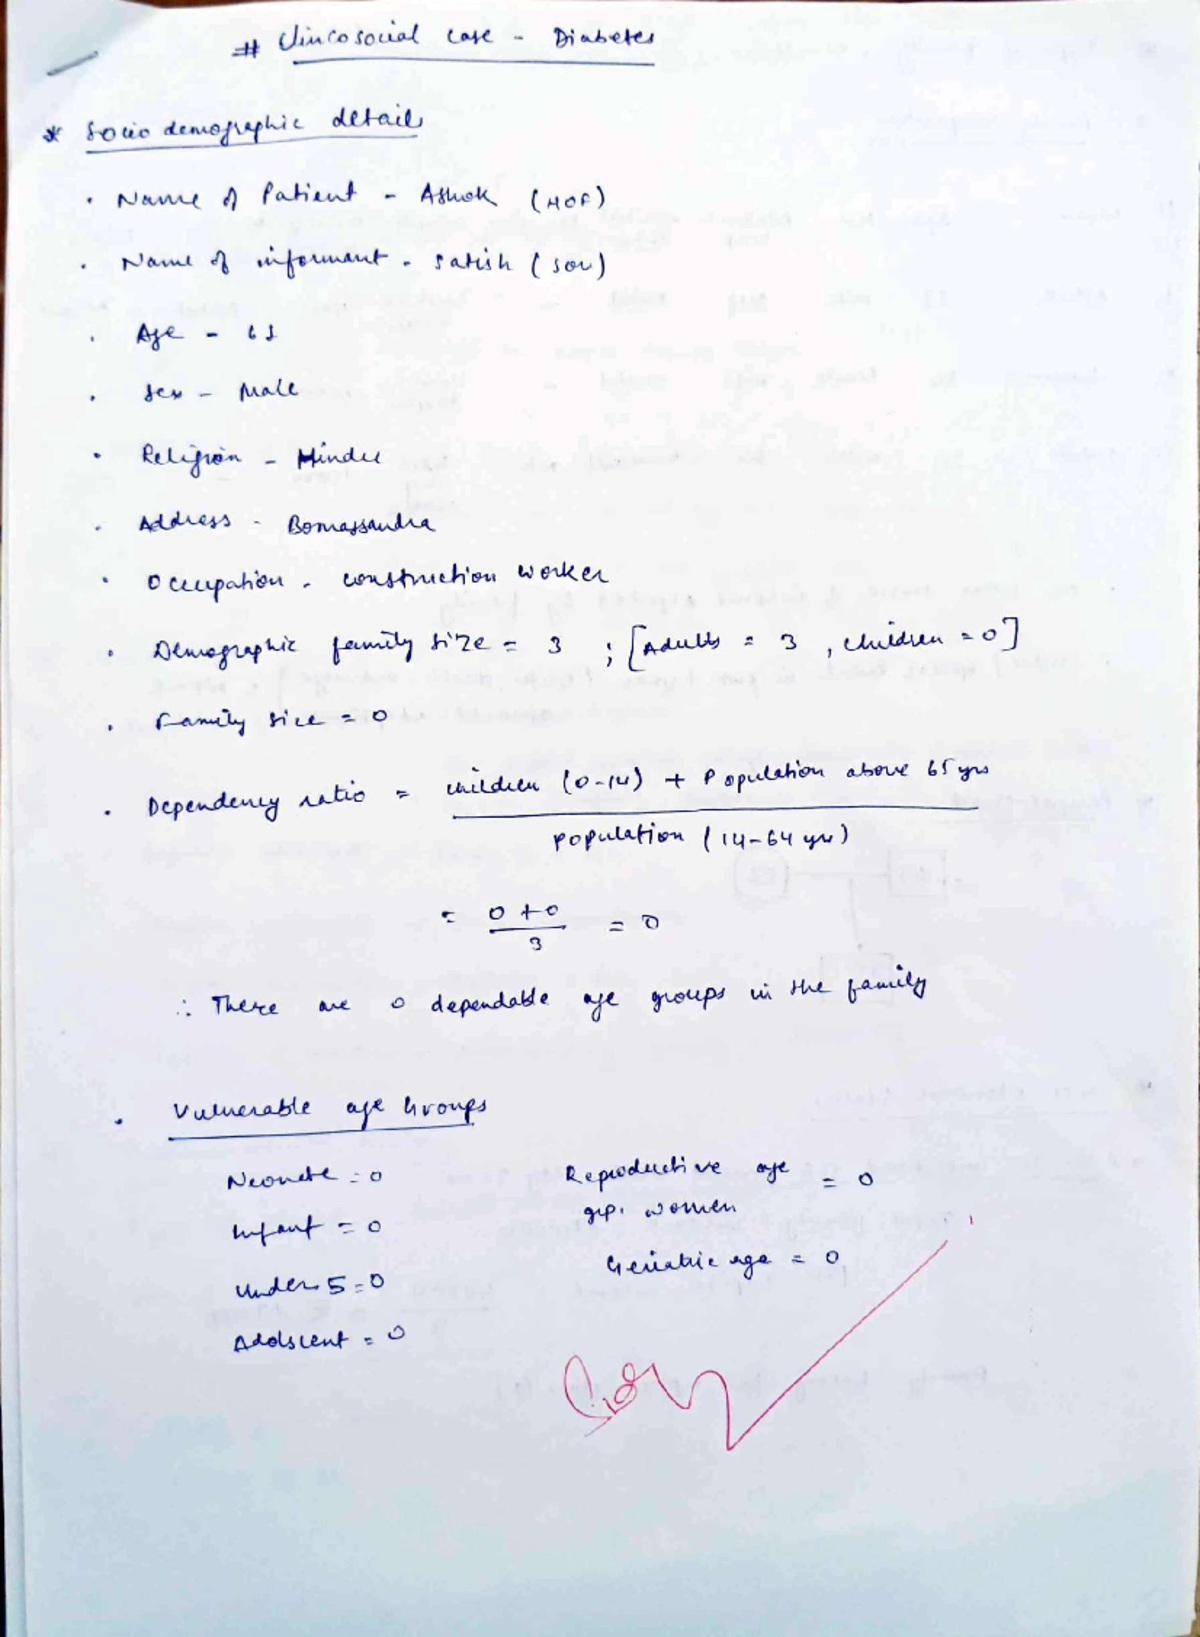 # Clincosocial case - Diabetes
* Socio demographic details
· Name of Patient - Ashok (HOF)
· Name of informant - Satish (son)
· Age - 61
· Sex - Male
· Religion - Hindu
· Address - Bomassandra
· Occupation - construction worker
· Demographic family size = 3 ; [Adults = 3 , children = 0]
· Family size = 0
· Dependency ratio = children (0-14) + Population above 65 yrs
population (14-64 yrs)
= 0 + 0 / 3 = 0
∴ There are 0 dependable age groups in the family
· Vulnerable age Groups
Neonate = 0
Infant = 0
Under 5 = 0
Adolscent = 0
Reproductive age
grp. women = 0
Geriatric age = 0